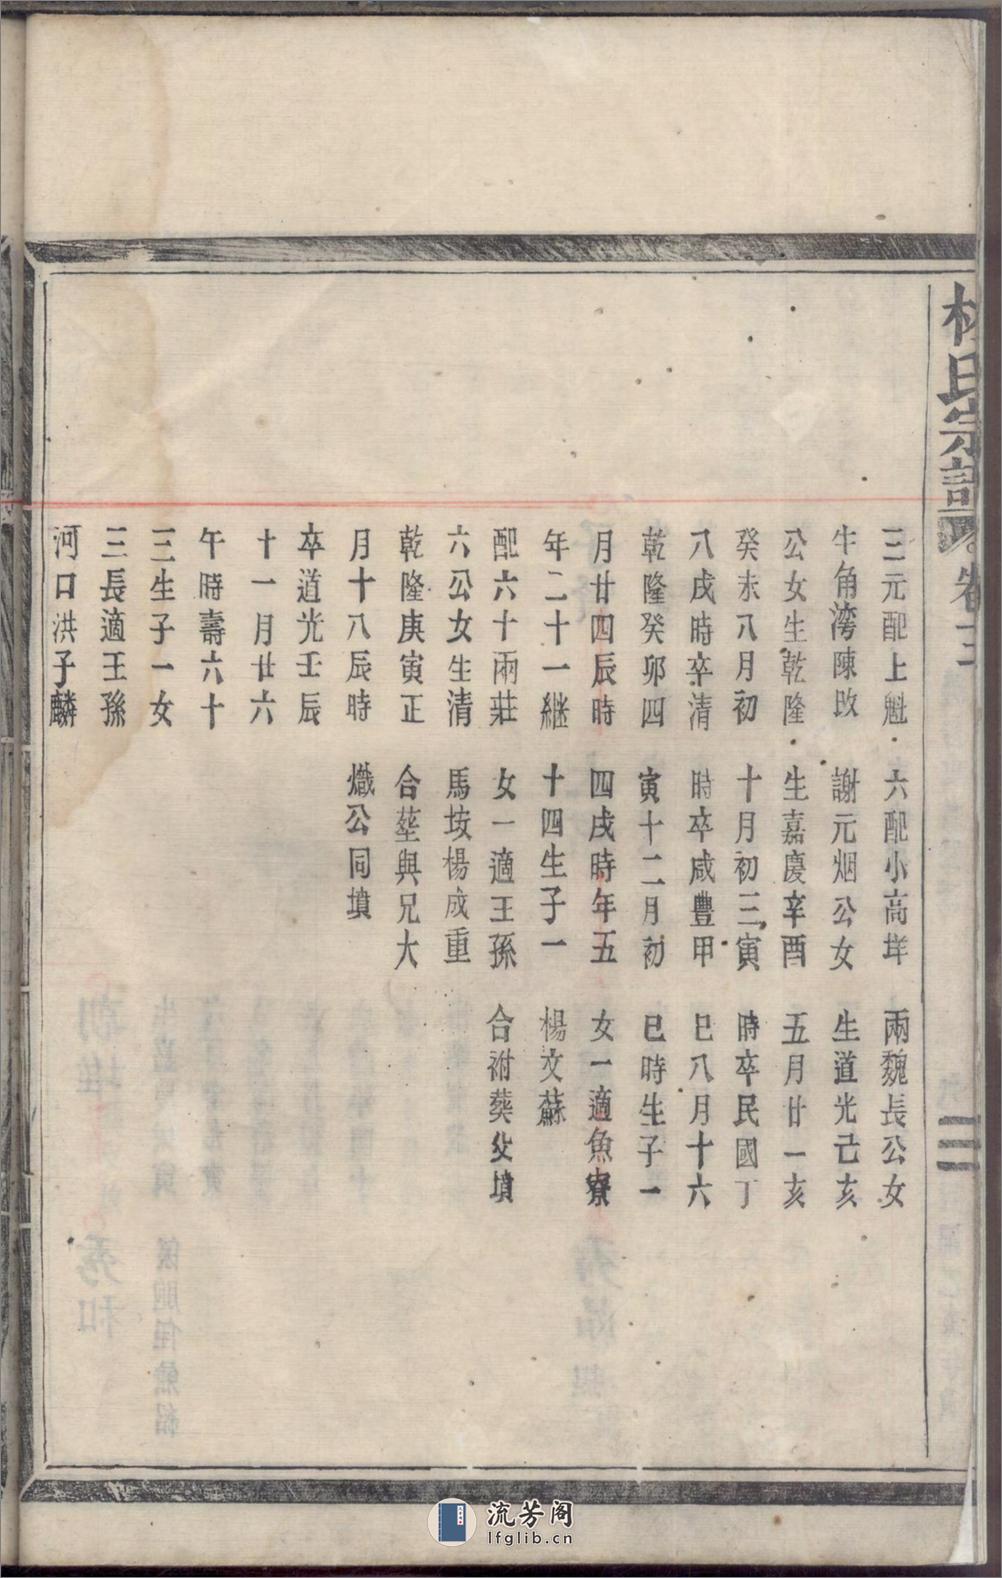 林氏宗譜 卷三
三元配上魁
牛角灣陳政
公女生乾隆
癸未八月初
八戌時卒清
乾隆癸卯四
月廿四辰時
年二十一継
配六十兩莊
六公女生清
乾隆庚寅正
月十八辰時
卒道光壬辰
十一月廿六
午時壽六十
三生子一女
三長適王孫
河口洪子麟
六配小高垟
謝元烟公女
生嘉慶辛酉
十月初三寅
時卒咸豐甲
寅十二月初
四戌時年五
十四生子一
女一適王孫
馬垵楊成重
合塟與兄大
熾公同墳
兩魏長公女
生道光己亥
五月廿一亥
時卒民國丁
巳八月十六
巳時生子一
女一適魚寮
楊文蘇
合祔葬父墳
流芳阁
lfglib.cn